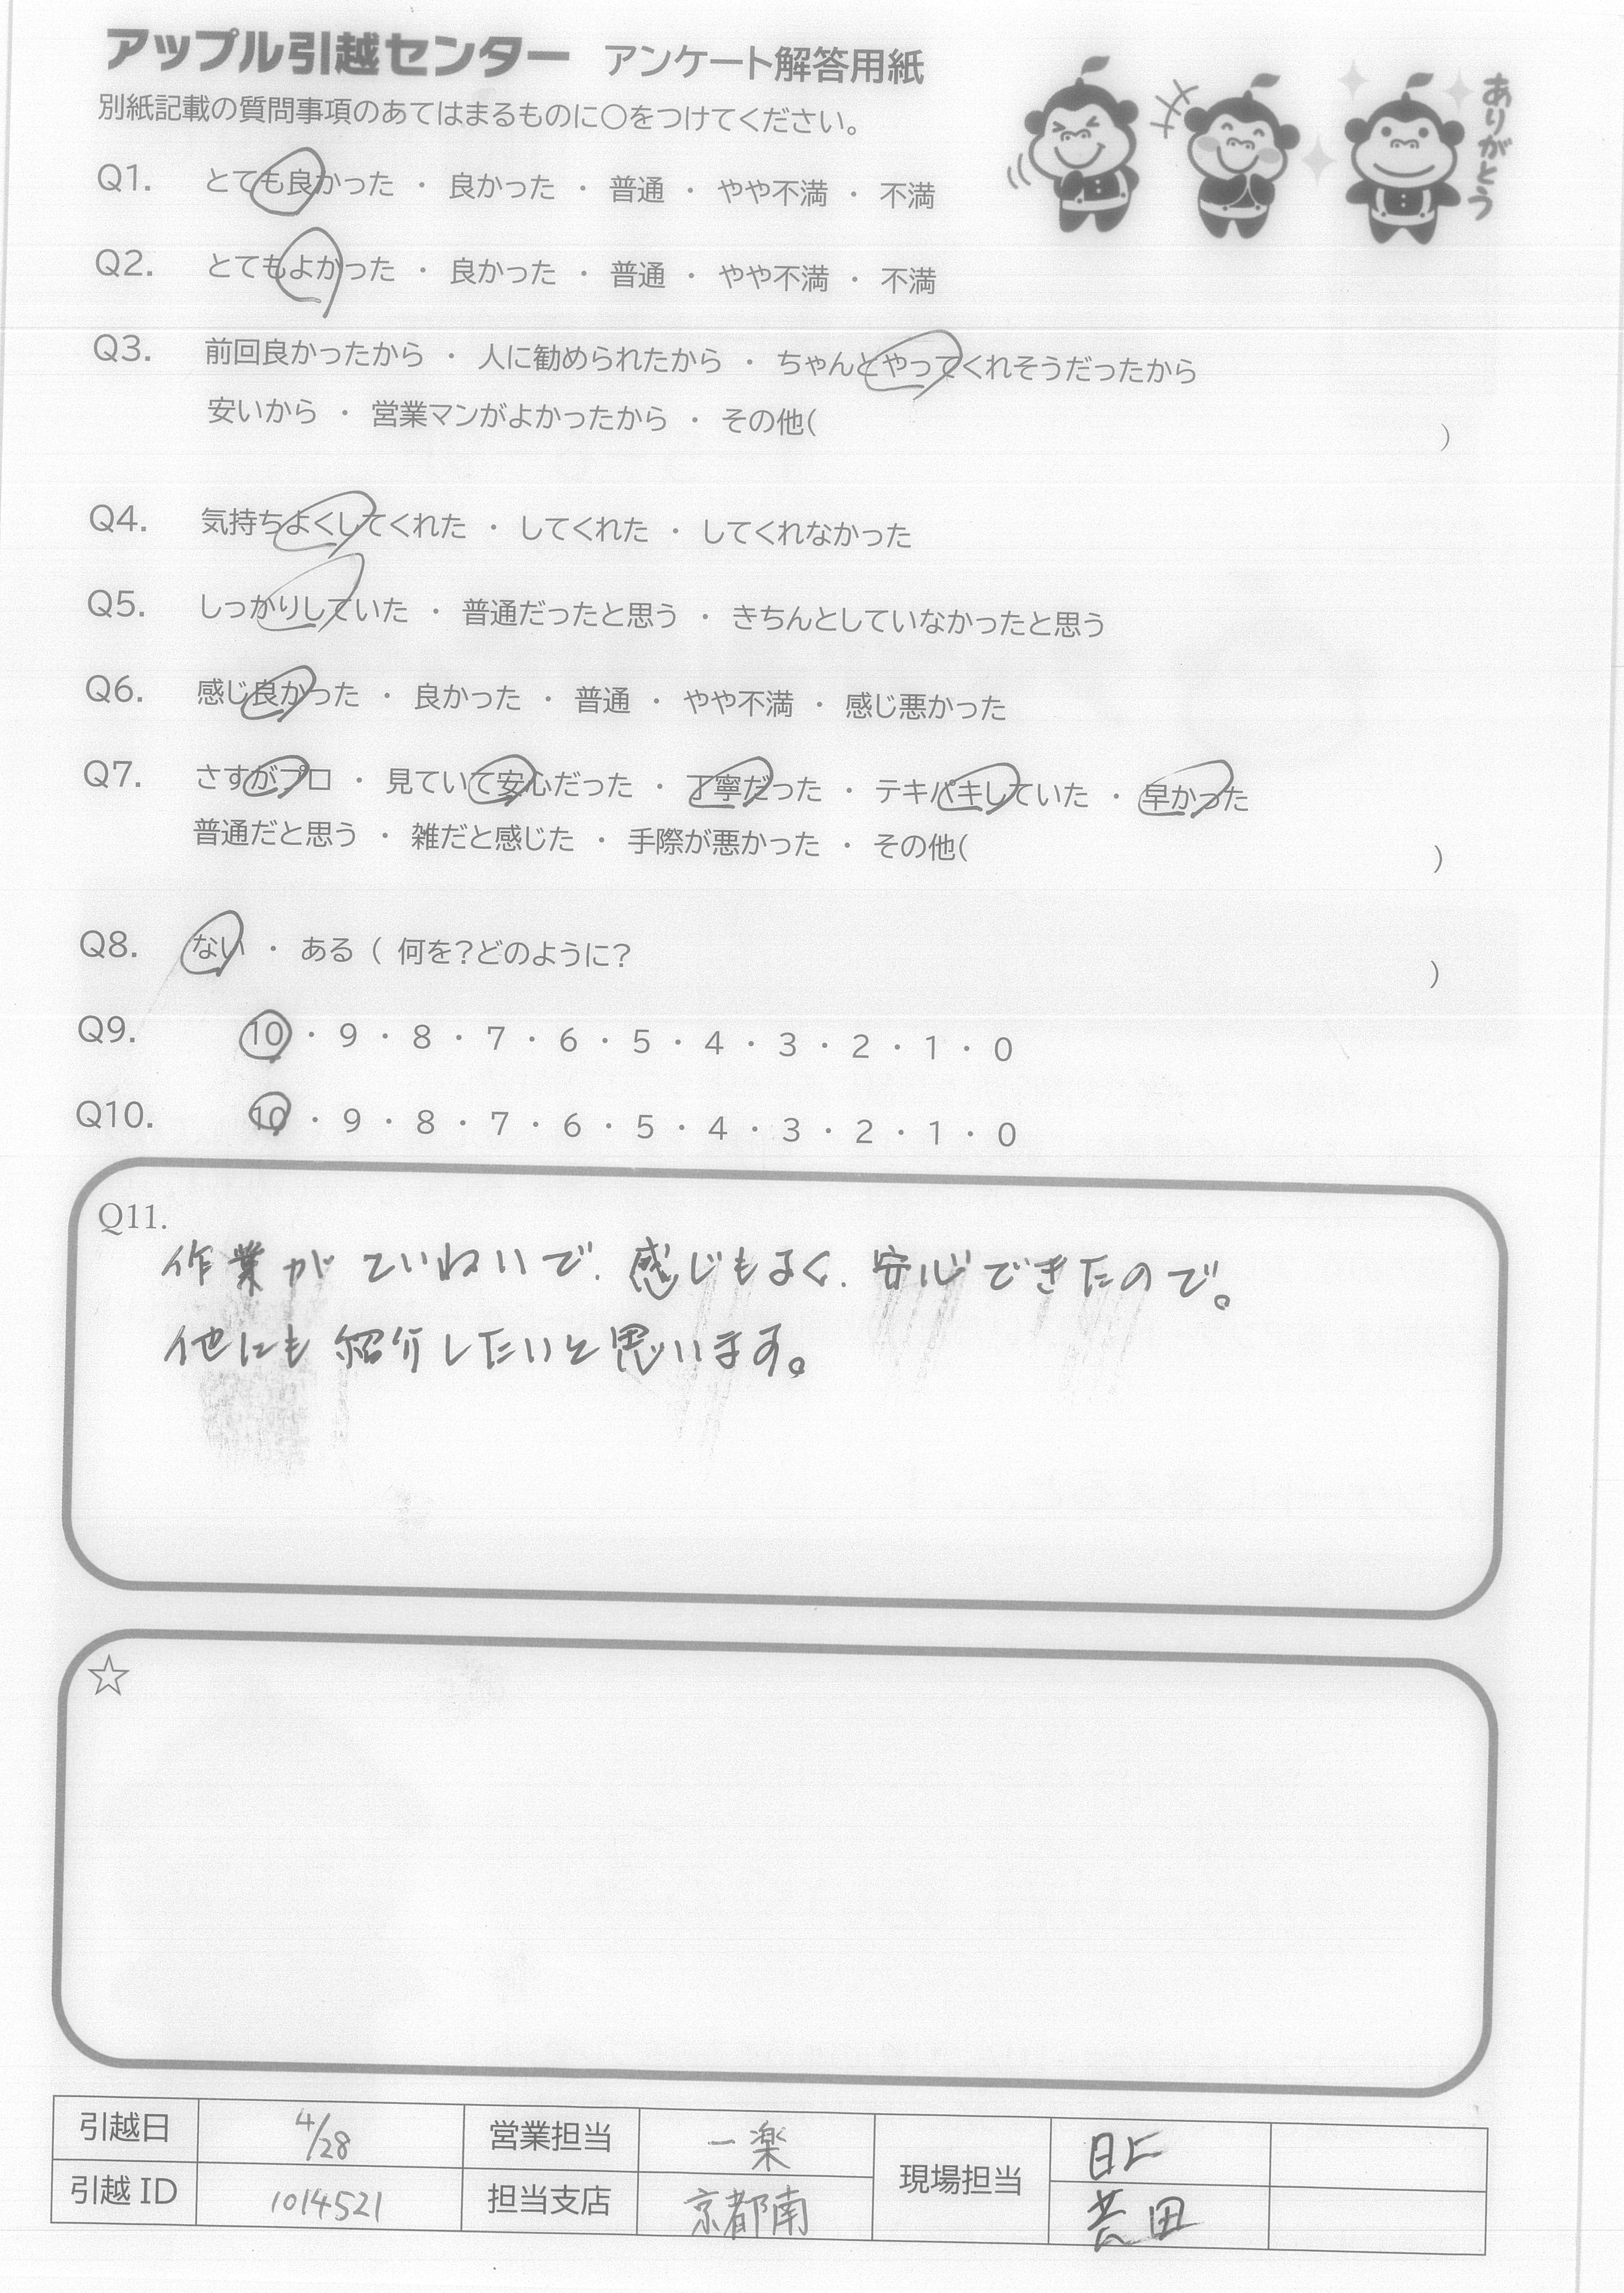 アップル引越センター アンケート解答用紙
ありがとう
別紙記載の質問事項のあてはまるものに○をつけてください。
Q1. とても良かった ・ 良かった ・ 普通 ・ やや不満 ・ 不満
Q2. とてもよかった ・ 良かった ・ 普通 ・ やや不満 ・ 不満
Q3. 前回良かったから ・ 人に勧められたから ・ ちゃんとやってくれそうだったから
安いから ・ 営業マンがよかったから ・ その他( )
Q4. 気持ちよくしてくれた ・ してくれた ・ してくれなかった
Q5. しっかりしていた ・ 普通だったと思う ・ きちんとしていなかったと思う
Q6. 感じ良かった ・ 良かった ・ 普通 ・ やや不満 ・ 感じ悪かった
Q7. さすがプロ ・ 見ていて安心だった ・ 丁寧だった ・ テキパキしていた ・ 早かった
普通だと思う ・ 雑だと感じた ・ 手際が悪かった ・ その他( )
Q8. ない ・ ある ( 何を?どのように? )
Q9. 10 ・ 9 ・ 8 ・ 7 ・ 6 ・ 5 ・ 4 ・ 3 ・ 2 ・ 1 ・ 0
Q10. 10 ・ 9 ・ 8 ・ 7 ・ 6 ・ 5 ・ 4 ・ 3 ・ 2 ・ 1 ・ 0
Q11.
作業がていねいで、感じもよく、安心できたので。
他にも紹介したいと思います。
☆
引越日 4/28 営業担当 一楽 現場担当
引越ID 1014521 担当支店 京都南 荒田